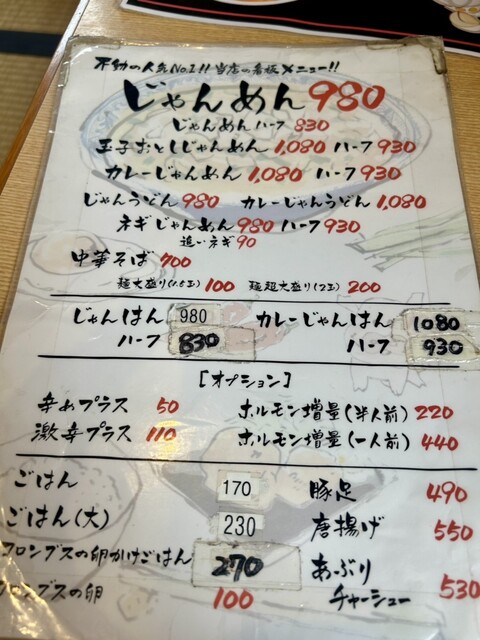 不動の人気No.1!! 当店の看板メニュー!!
じゃんめん 980
じゃんめんハーフ 830
玉子おとしじゃんめん 1,080 ハーフ 930
カレーじゃんめん 1,080 ハーフ 930
じゃんうどん 980 カレーじゃんうどん 1,080
ネギじゃんめん 980 ハーフ 930
追いネギ 90
中華そば 700
麺大盛り(1.5玉) 100 麺超大盛り(2玉) 200
じゃんはん 980 カレーじゃんはん 1080
ハーフ 830 ハーフ 930
[オプション]
辛めプラス 50 ホルモン増量(半人前) 220
激辛プラス 110 ホルモン増量(一人前) 440
ごはん 170 豚足 490
ごはん(大) 230 唐揚げ 550
コロンブスの卵かけごはん 270 あぶり
コロンブスの卵 100 チャーシュー 530